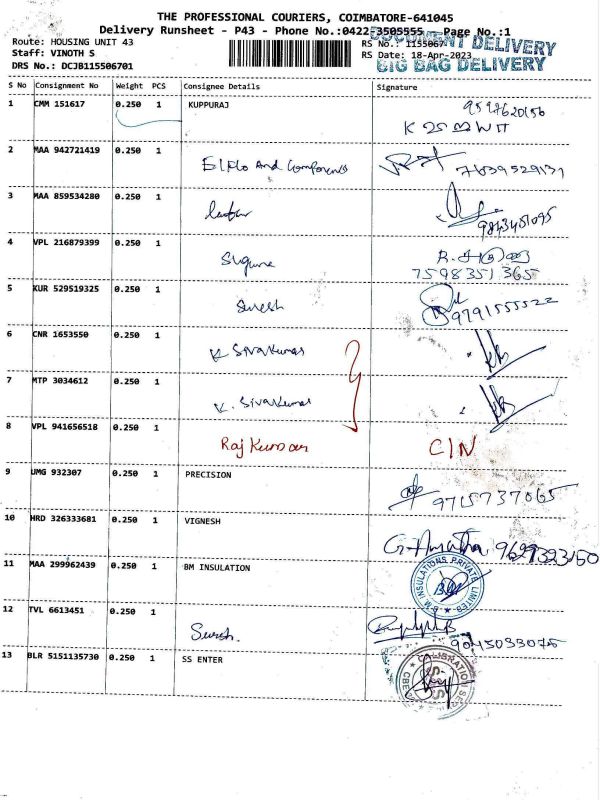 THE PROFESSIONAL COURIERS, COIMBATORE-641045
Delivery Runsheet - P43 - Phone No.:0422-3505555 - Page No.:1
Route: HOUSING UNIT 43
RS No.: 1155067
DOCUMENT DELIVERY
Staff: VINOTH S
RS Date: 18-Apr-2023
DRS No.: DCJB115506701
BIG BAG DELIVERY
S No Consignment No Weight PCS Consignee Details Signature
1 CMM 151617 0.250 1 KUPPURAJ
2 MAA 942721419 0.250 1 Elklo And Components 7639529131
3 MAA 859534280 0.250 1
4 VPL 216879399 0.250 1 Suguna
7598351365
5 KUR 529519325 0.250 1 Suresh 9791555522
6 CNR 1653550 0.250 1 K Sivakumar
7 MTP 3034612 0.250 1 K. Sivakumar
8 VPL 941656518 0.250 1 Raj Kumar C/N
9 UMG 932307 0.250 1 PRECISION 9715737065
10 HRD 326333681 0.250 1 VIGNESH
11 MAA 299962439 0.250 1 BM INSULATION
B.M. INSULATIONS PRIVATE LIMITED
12 TVL 6613451 0.250 1 Suresh. 9045033075
13 BLR 5151135730 0.250 1 SS ENTER
CALIBRATION